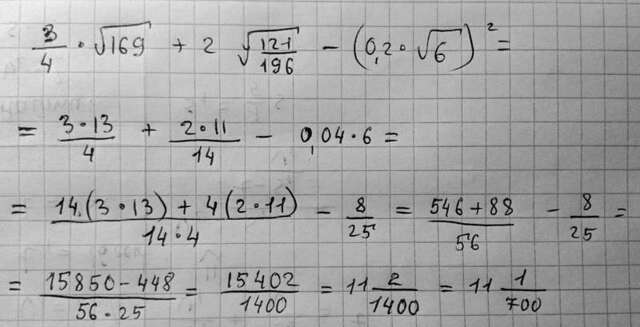 3/4 · √169 + 2 √(121/196) − (0,2 · √6)² =
= (3·13)/4 + (2·11)/14 − 0,04·6 =
= (14·(3·13) + 4(2·11))/(14·4) − 8/25 = (546+88)/56 − 8/25 =
= (15850−448)/(56·25) = 15402/1400 = 11 2/1400 = 11 1/700